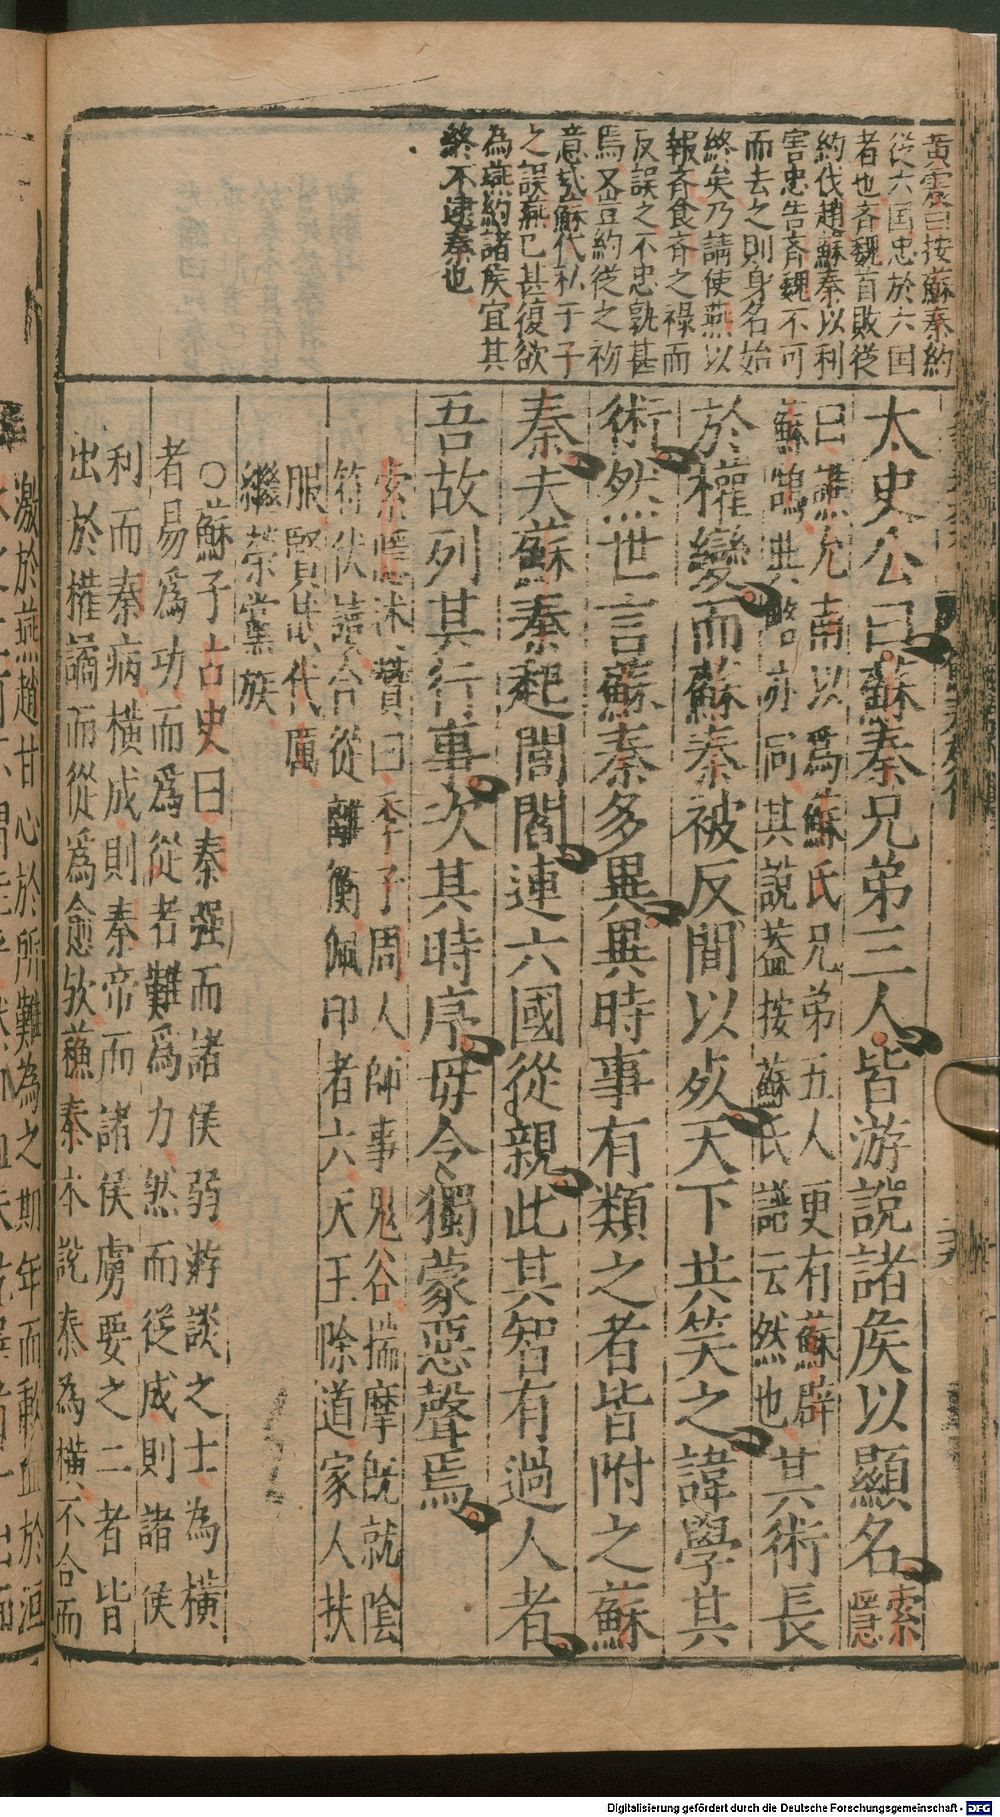 黃震曰按蘇秦約
從六国忠於六国
者也斉魏首敗從
約伐趙蘇秦以利
害忠告斉魏不可
而去之則身名始
終矣乃請使燕以
報斉食斉之祿而
反誤之不忠孰甚
焉又豈約從之初
意㢤蘇代私于子
之誤燕已甚復欲
為燕約諸矦宜其
終不逮秦也
太史公曰蘇秦兄弟三人皆游說諸矦以顯名索隱
曰譙允南以爲蘇氏兄弟五人更有蘇辟
蘇鵠典略亦同其說蓋按蘇氏譜云然也其術長
於權變而蘇秦被反間以死天下共笑之諱學其
術然世言蘇秦多異異時事有類之者皆附之蘇
秦夫蘇秦起閭閻連六國從親此其智有過人者
吾故列其行事次其時序毋令獨蒙惡聲焉
索隱述贊曰季子周人師事鬼谷揣摩旣就陰
符伏讀合從離衡佩印者六天王除道家人扶
服賢㢤代厲
繼榮黨族
○蘇子古史曰秦强而諸侯弱游談之士為橫
者易爲功而爲從者難爲力然而從成則諸侯
利而秦病橫成則秦帝而諸侯虜要之二者皆
出於權譎而從爲愈欤蘓秦本說秦為橫不合而
激於燕趙甘心於所難為之期年而歃血於洹
Digitalisierung gefördert durch die Deutsche Forschungsgemeinschaft - DFG